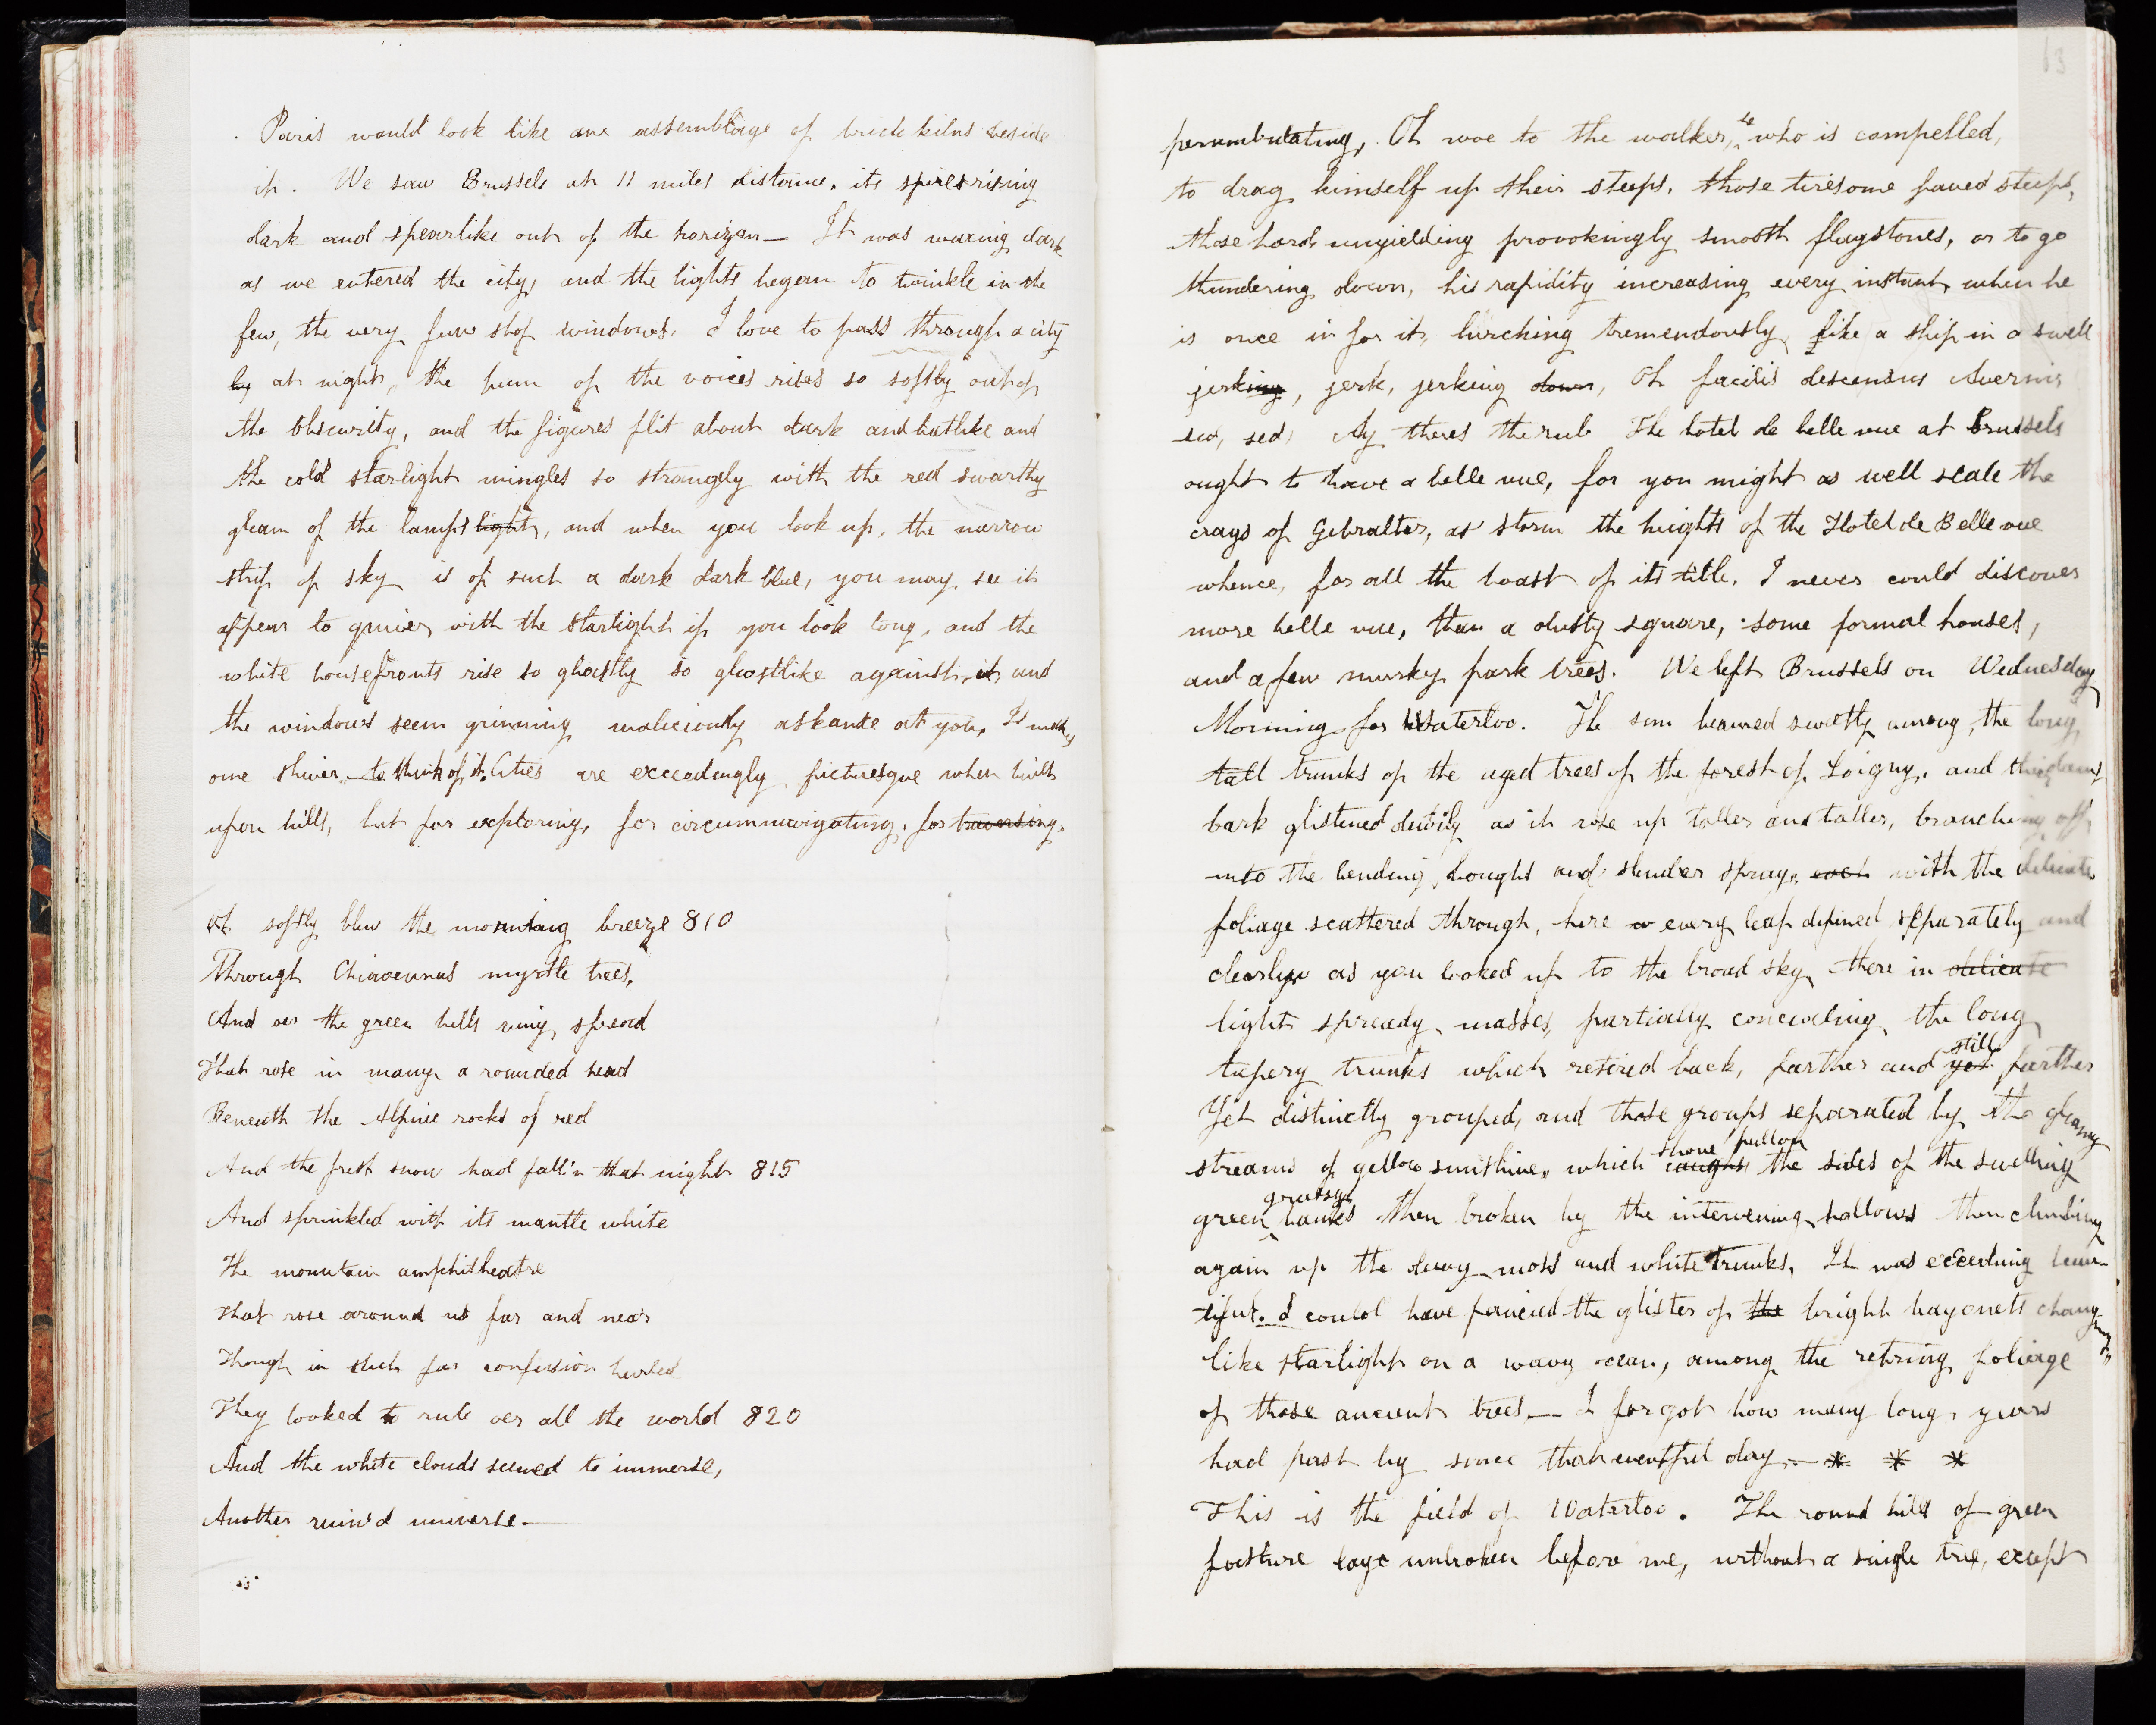 Paris would look like one assemblage of brick kilns beside
it. We saw Brussels at 11 miles distance, its spires rising
dark and spearlike out of the horizon— It was waxing dark
as we entered the city, and the lights began to twinkle in the
few, the very few shop windows. I love to pass through a city
by at night, the hum of the voices rises so softly out of
the obscurity, and the figures flit about dark and batlike and
the cold starlight mingles so strangely with the red swarthy
gleam of the lamps light, and when you look up, the narrow
strip of sky is of such a dark dark blue, you may see it
appear to quiver with the starlight if you look long, and the
white housefronts rise so ghastly so ghostlike against it and
the windows seem grinning maliciously askance at you, It makes
one shiver to think of it. Cities are exceedingly picturesque when built
upon hills, but for exploring, for circumnavigating, for traversing,
softly blew the morning breeze 810
Through Chiavennas myrtle trees,
And oer the green hills rung, spread
That rose in many a rounded head
Beneath the Alpine rocks of red
And the fresh snow had fall'n that night 815
And sprinkled with its mantle white
The mountain amphitheatre
That rose around us far and near
Though in such far confusion hurled
They looked to rule oer all the world 820
And the white clouds seemed to immerse,
Another ruin'd universe—
perambulating, Oh woe to the walker, who is compelled,
to drag himself up their steeps, those tiresome paved steeps,
those hard unyielding provokingly smooth flagstones, or to go
thundering down, his rapidity increasing every instant, when he
is once in for it, lurching tremendously like a ship in a swell
jerking, jerk, jerking down, Oh facilis descensus Averni
sed, sed, Ay theres the rub The hotel de belle vue at Brussels
ought to have a belle vue, for you might as well scale the
crags of Gibralter, as storm the heights of the Hotel de Belle vue
whence, for all the boast of its title, I never could discover
more belle vue, than a dusty square, some formal houses,
and a few murky park trees. We left Brussels on Wednesday
Morning for Waterloo. The sun beamed sweetly among the long,
tall trunks of the aged trees of the forest of Soigny, and their damp
bark glistened dewily as it rose up taller and taller, branching off
into the bending boughs and slender spray, with the delicate
foliage scattered through, here every leaf defined separately and
clearly as you looked up to the broad sky, there in delicate
light spready masses, partially concealing the long
tapery trunks which retired back, farther and yet still farther
Yet distinctly grouped, and those groups separated by the glassy
streams of yellow sunshine, which caught shone full on the sides of the swelling
green grassy banks then broken by the intervening hollows then climbing
again up the dewy moss and white trunks, It was exceeding beau-
tiful. I could have fancied the glister of the bright bayonets changing
like starlight on a wavy ocean, among the retiring foliage
of those ancient trees— I forgot how many long years
had past by since that eventful day.— * * *
This is the field of Waterloo. The round hills of green
pasture laye unbroken before me, without a single tree, except